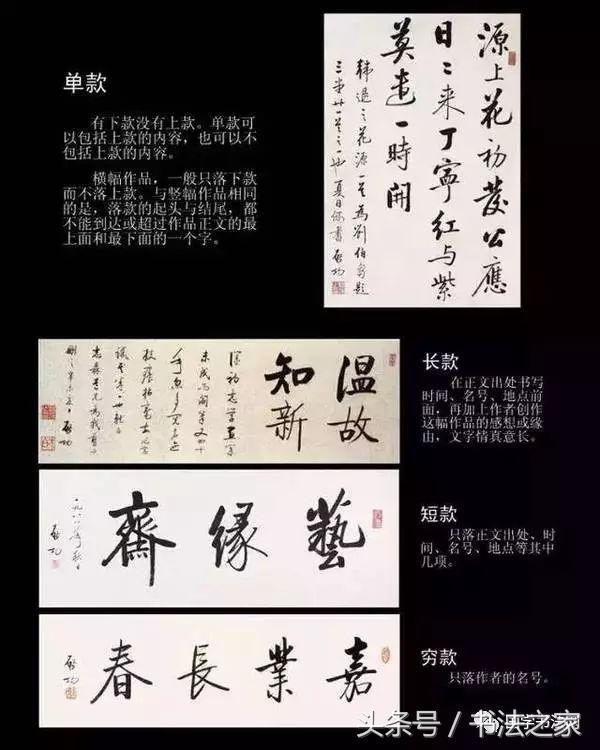 单款
有下款没有上款。单款可
以包括上款的内容，也可以不
包括上款的内容。
横幅作品，一般只落下款
而不落上款。与竖幅作品相同
的是，落款的起头与结尾，都
不能到达或超过作品正文的最
上面和最下面的一个字。
源上花初發公應
日〻来丁寧紅与紫
莫遣一時開
韓退之花源一首為劉伯芻題
三堂廿一首之一也 夏日 書 啟功
温故
知新
啟功
长款
在正文出处书写
时间、名号、地点前
面，再加上作者创作
这幅作品的感想或缘
由，文字情真意长。
藝緣齋
一九八八年秋日
啟功
短款
只落正文出处、时
间、名号、地点等其中
几项。
嘉業長春
啟功
穷款
只落作者的名号。
头条号 / 书法之家